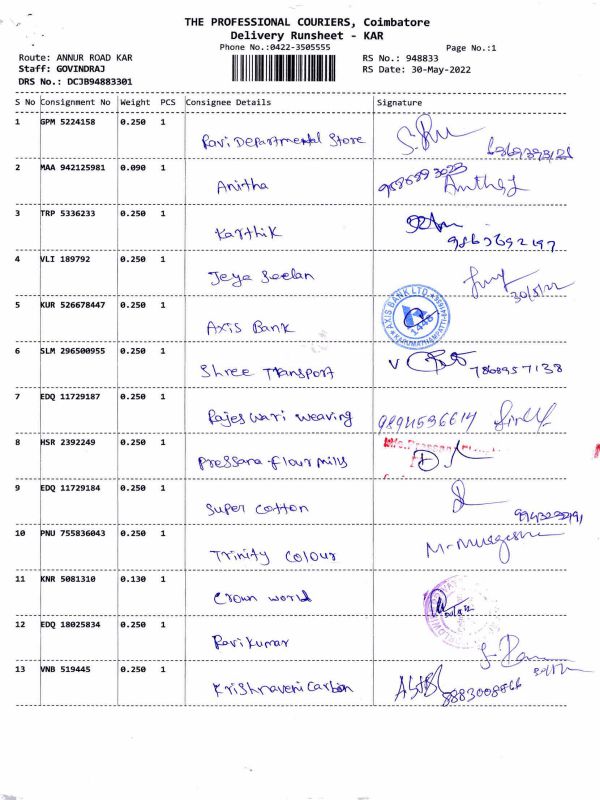 THE PROFESSIONAL COURIERS, Coimbatore
Delivery Runsheet - KAR
Phone No.:0422-3505555
Page No.:1
Route: ANNUR ROAD KAR
RS No.: 948833
Staff: GOVINDRAJ
RS Date: 30-May-2022
DRS No.: DCJB94883301
S No Consignment No Weight PCS Consignee Details Signature
1 GPM 5224158 0.250 1 Ravi Departmental Store
2 MAA 942125981 0.090 1 Anitha
3 TRP 5336233 0.250 1 Karthik
4 VLI 189792 0.250 1 Jeya Seelan 30/5/22
5 KUR 526678447 0.250 1 Axis Bank AXIS BANK LTD. 1448
6 SLM 296500955 0.250 1 Shree Transport 7868957138
7 EDQ 11729187 0.250 1 Rajeswari weaving 9894596614
8 HSR 2392249 0.250 1 Pressana flour mills
9 EDQ 11729184 0.250 1 Super cotton
10 PNU 755836043 0.250 1 Trinity colour
11 KNR 5081310 0.130 1 Crown world
12 EDQ 18025834 0.250 1 Ravikumar
13 VNB 519445 0.250 1 Krishnaveni Carbon 8883008866